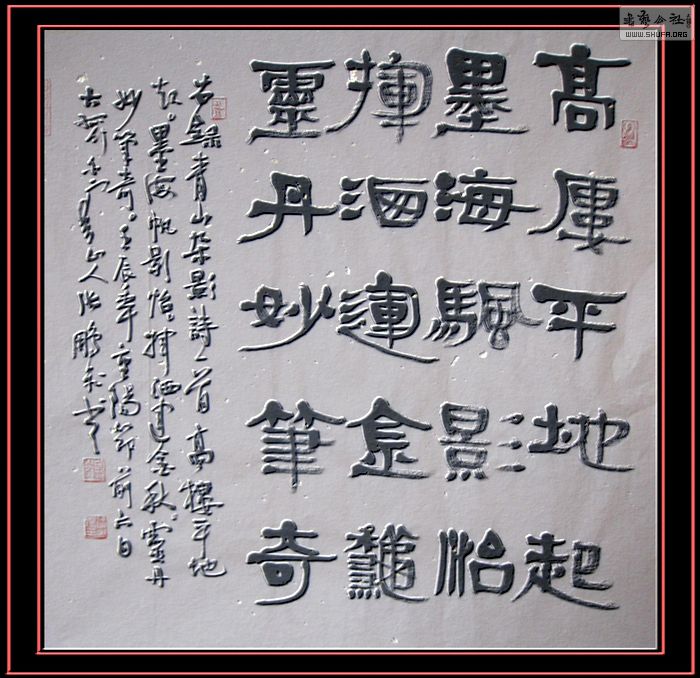 书艺公社
WWW.SHUFA.ORG
高廔平地起
墨海颿影怡
揮洒運金龝
靈丹妙筆奇
錄青山朵影詩一首高樓平地
起墨海帆影怡揮洒運金秋靈丹
妙筆奇壬辰年重陽節前六日
山人張鵬